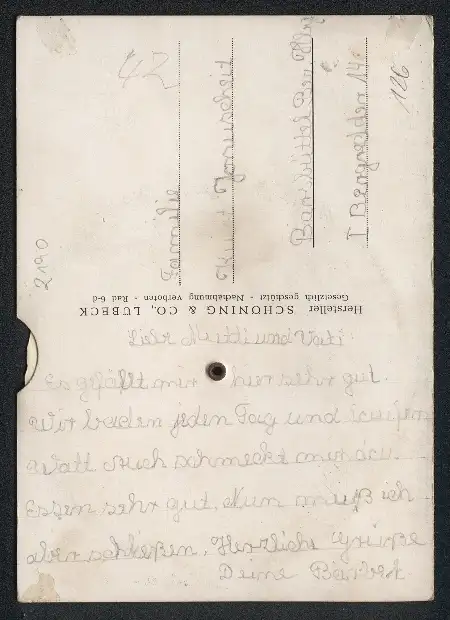 42
126
2190
Familie
Kurt
Barsbüttel Bez. Hbg
Hersteller SCHÖNING & CO., LÜBECK
Gesetzlich geschützt - Nachahmung verboten - Rad 6-d
Liebe Mutti und Vati
Es gefällt mir hier sehr gut.
Wir baden jeden Tag und laufen
Watt Auch schmeckt mir das
Essen sehr gut. Nun muß ich
aber schließen. Herzliche Grüße
Deine Bärbel